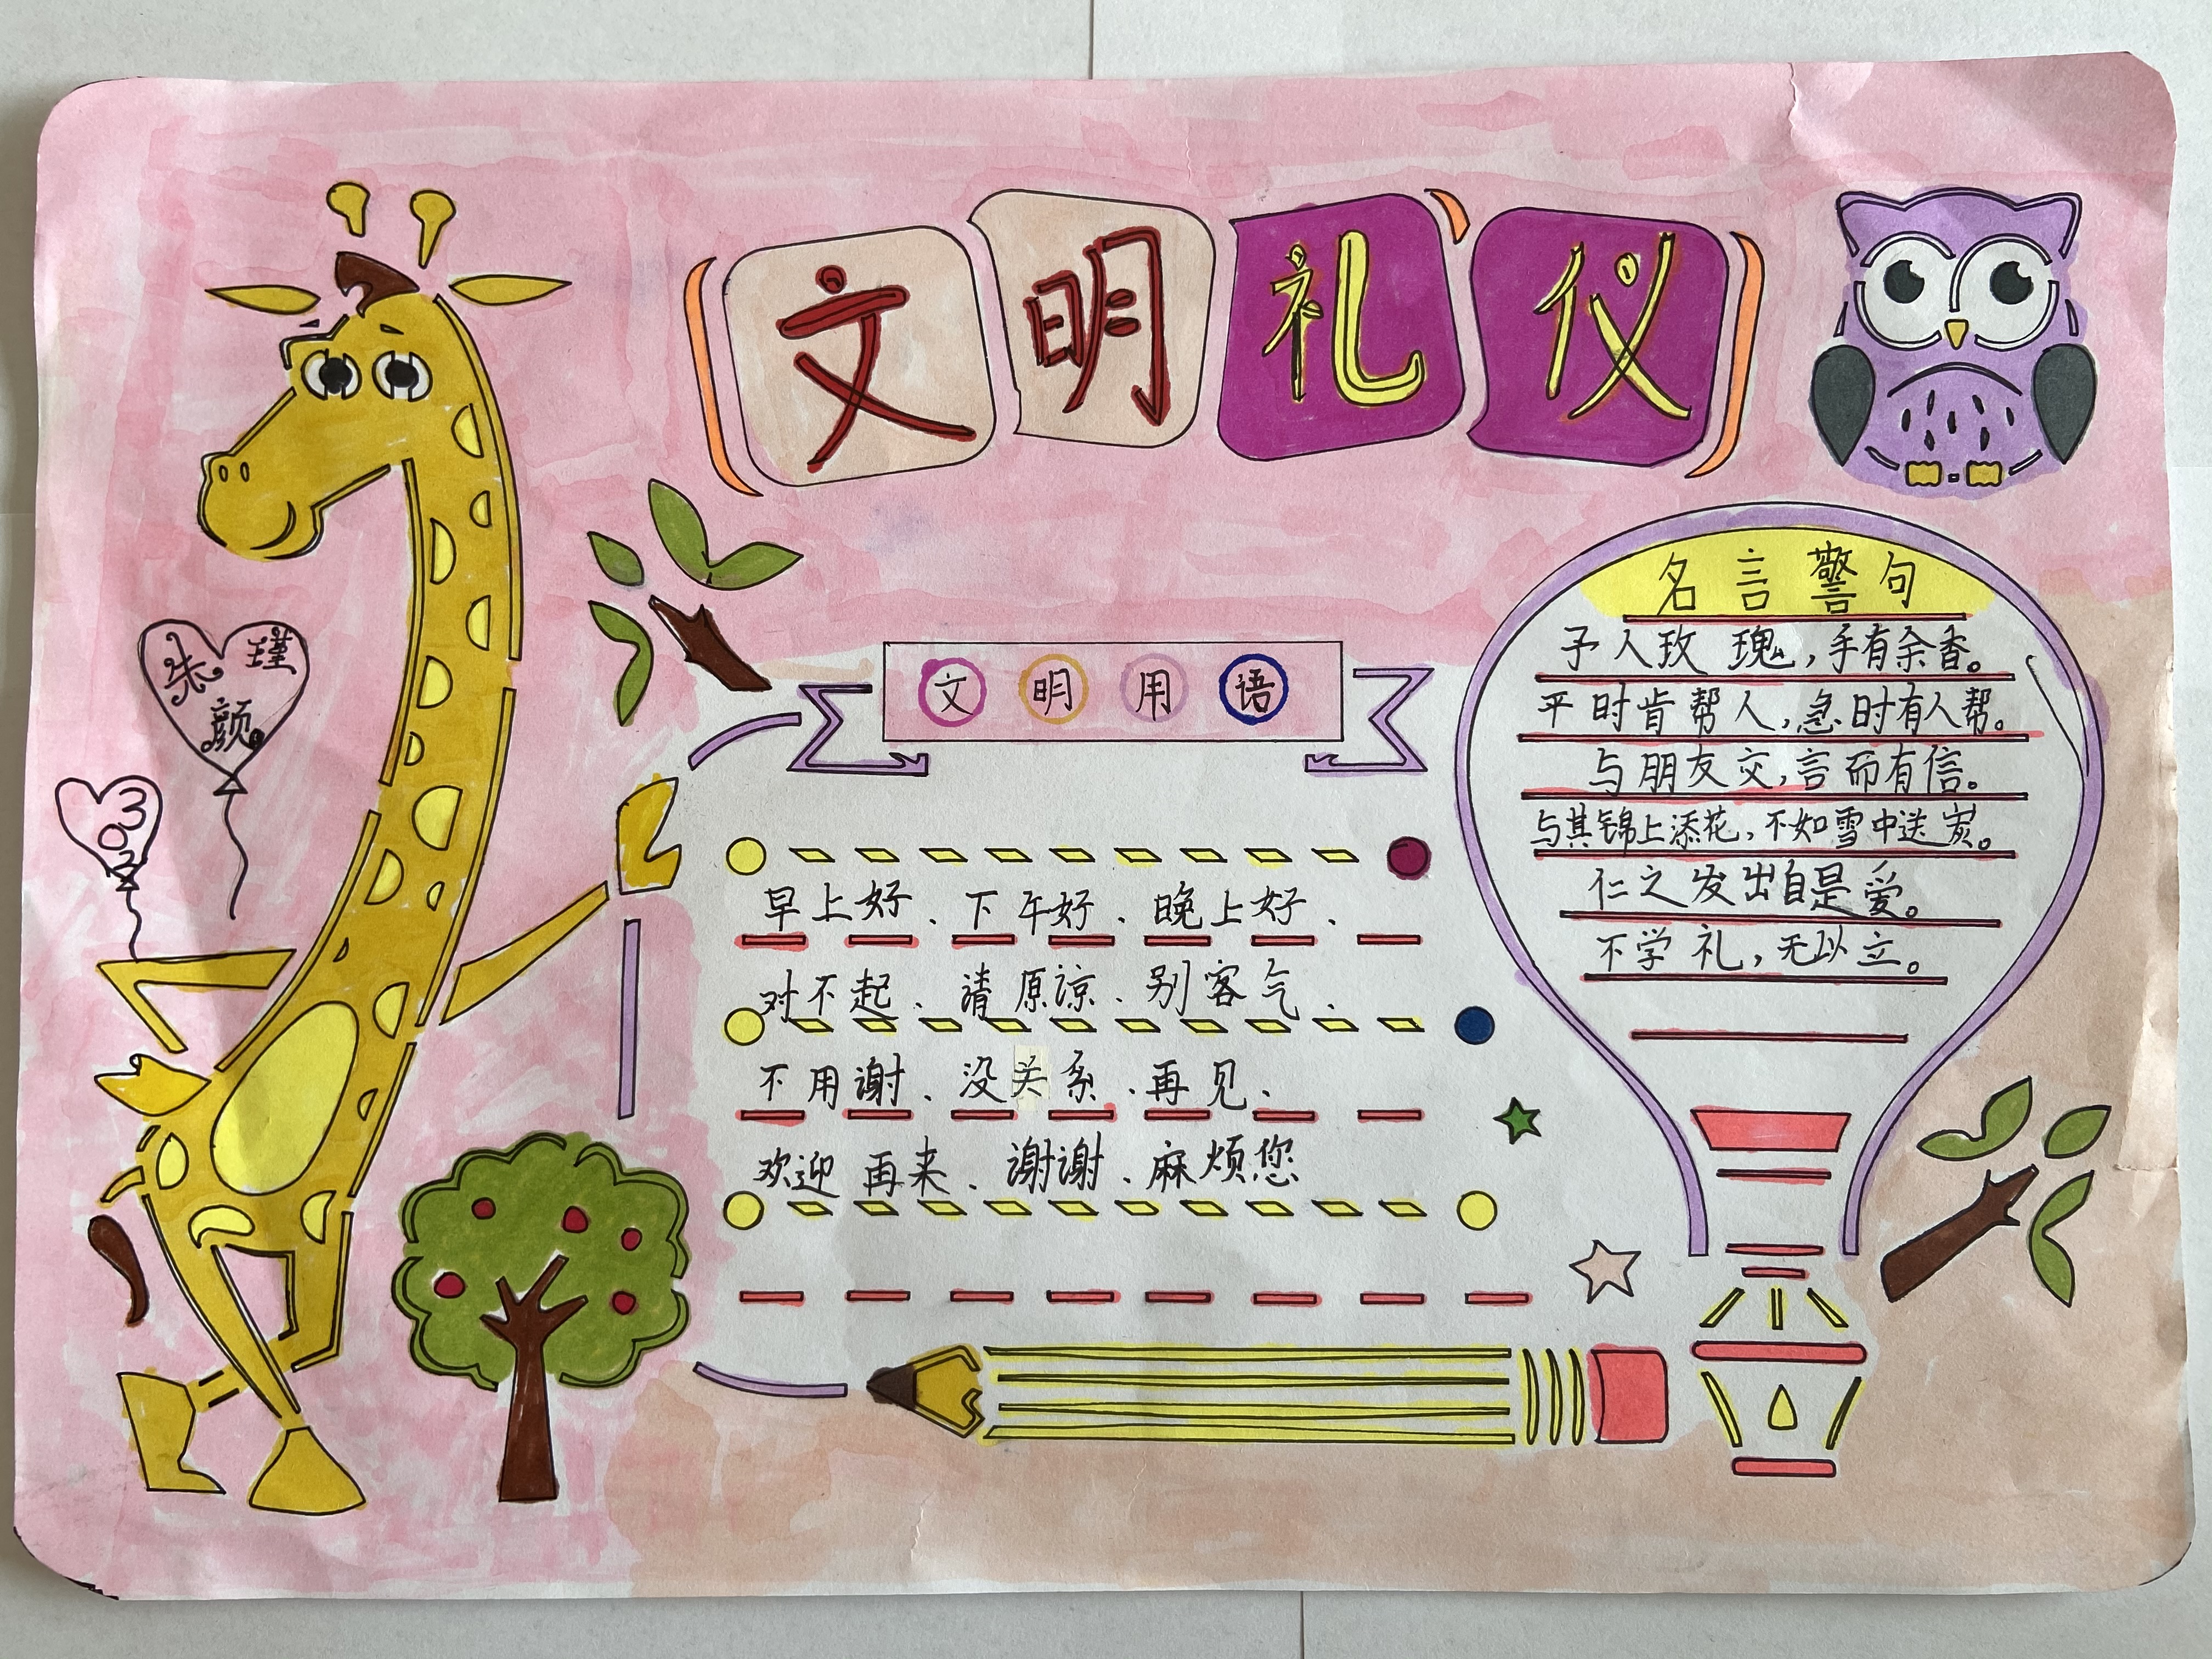 文明礼仪
朱瑾
颜
文明用语
早上好、下午好、晚上好、
对不起、请原谅、别客气、
不用谢、没关系、再见、
欢迎再来、谢谢、麻烦您
名言警句
予人玫瑰,手有余香。
平时肯帮人,急时有人帮。
与朋友交,言而有信。
与其锦上添花,不如雪中送炭。
仁之发出自是爱。
不学礼,无以立。